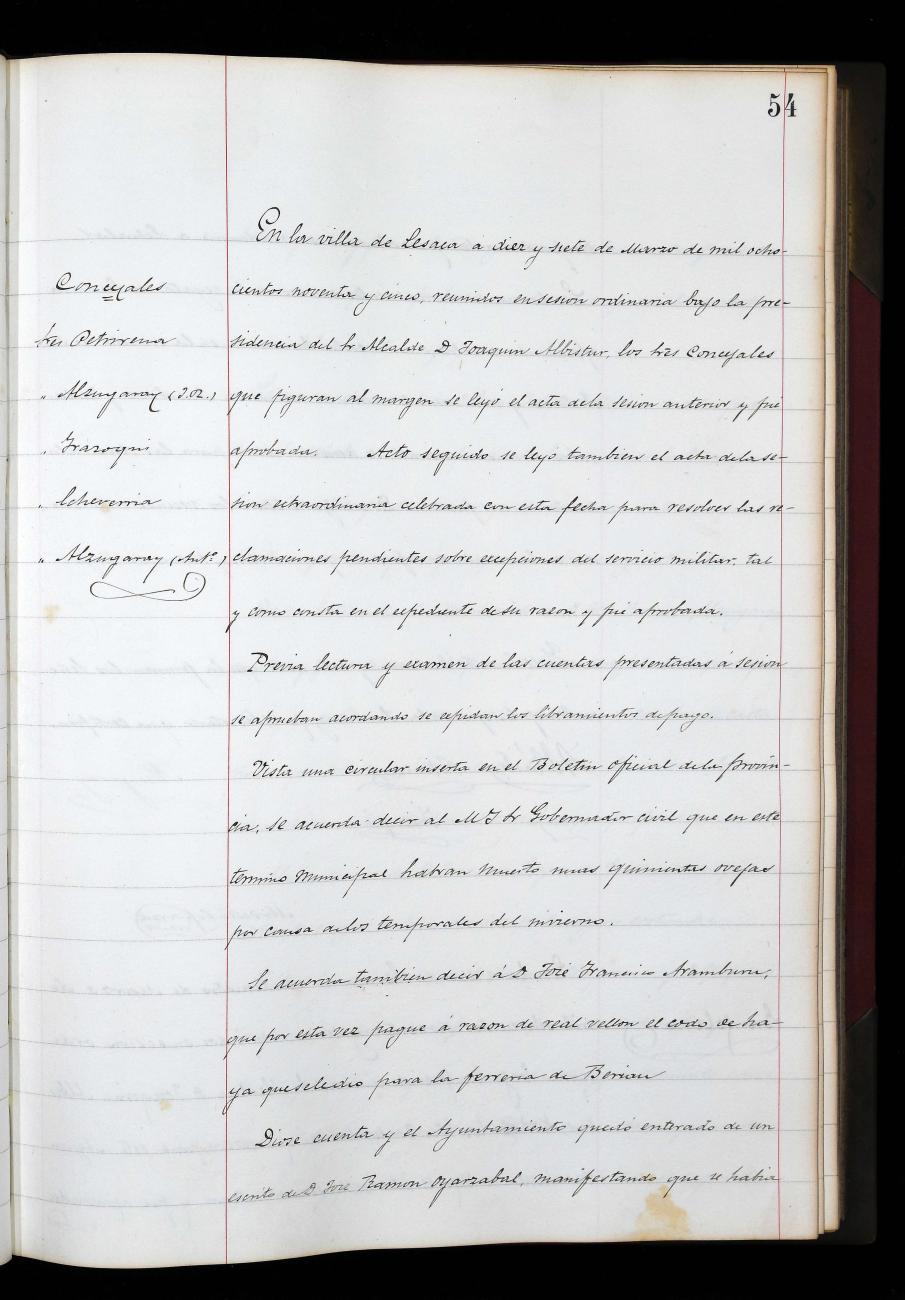 54
Concejales
Sres Petrirena
" Alzugaray (J. Oz.)
" Irazoqui
" Echeverria
" Alzugaray (Antº)
En la villa de Lesaca a diez y siete de Marzo de mil ocho-
cientos noventa y cinco, reunidos en sesion ordinaria bajo la pre-
sidencia del Sr Alcalde D Joaquin Albistur, los Sres Concejales
que figuran al margen se leyó el acta de la sesion anterior y fue
aprobada. Acto seguido se leyo tambien el acta de la se-
sion extraordinaria celebrada con esta fecha para resolver las re-
clamaciones pendientes sobre excepciones del servicio militar, tal
y como consta en el expediente de su razon y fue aprobada.
Previa lectura y examen de las cuentas presentadas á sesion
se aprueban acordando se expidan los libramientos de pago.
Vista una circular inserta en el Boletin oficial de la provin-
cia, se acuerda decir al M I Sr Gobernador civil que en este
termino municipal habran muerto unas quinientas ovejas
por causa de los temporales del invierno.
Se acuerda tambien decir á D José Francisco Aramburu,
que por esta vez pague á razon de real vellon el codo de ha-
ya que se le dio para la ferreria de Berian
Diose cuenta y el Ayuntamiento quedó enterado de un
escrito de D José Ramon Oyarzabal, manifestando que se habia